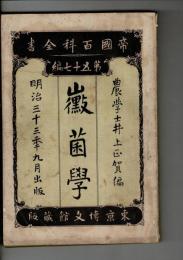 帝國百科全書
第五十七編
農學士井上正賀編
黴菌學
明治三十三年九月出版
東京博文館藏版